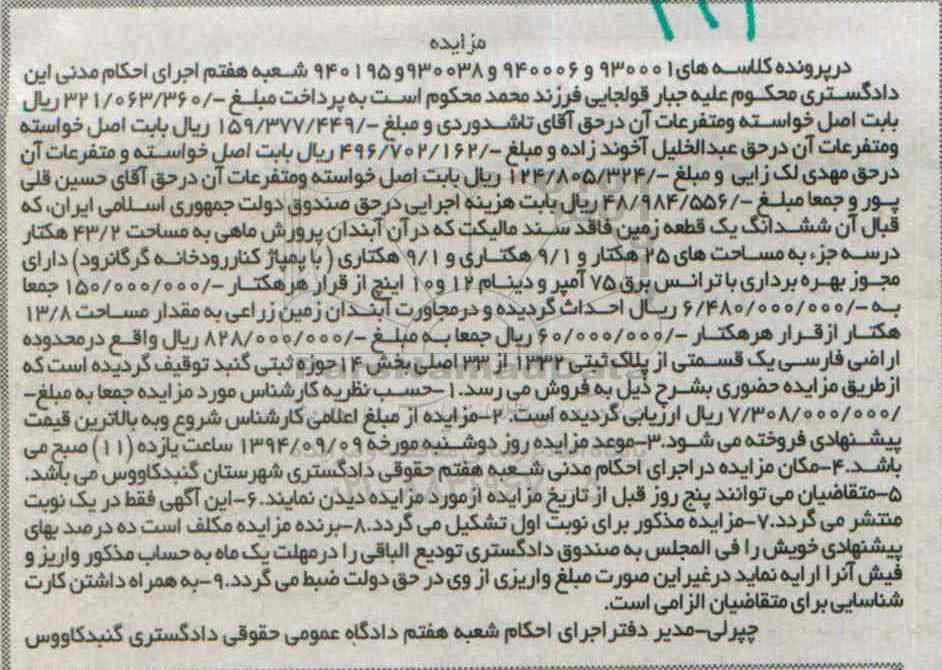 مزایده
درپرونده کلاسه های۹۳۰۰۰۱ و ۹۴۰۰۰۶ و۹۳۰۰۳۸ و۹۴۰۱۹۵ شعبه هفتم اجرای احکام مدنی این
دادگستری محکوم علیه جبار قولجایی فرزند محمد محکوم است به پرداخت مبلغ -/۳۲۱/۰۶۳/۳۶۰ ریال
بابت اصل خواسته ومتفرعات آن درحق آقای تاشدوردی و مبلغ -/۱۵۹/۳۷۷/۴۴۹ ریال بابت اصل خواسته
ومتفرعات آن درحق عبدالخلیل آخوند زاده و مبلغ -/۴۹۶/۷۰۲/۱۶۲ ریال بابت اصل خواسته و متفرعات آن
درحق مهدی لک زایی و مبلغ -/۱۲۴/۸۰۵/۳۲۴ ریال بابت اصل خواسته ومتفرعات آن درحق آقای حسین قلی
پور و جمعا مبلغ -/۴۸/۹۸۴/۵۵۶ ریال بابت هزینه اجرایی درحق صندوق دولت جمهوری اسلامی ایران، که
قبال آن ششدانگ یک قطعه زمین فاقد سند مالیکت که درآن آبندان پرورش ماهی به مساحت ۴۳/۲ هکتار
درسه جزء به مساحت های ۲۵ هکتار و ۹/۱ هکتاری و ۹/۱ هکتاری ( با پمپاژ کناررودخانه گرگانرود) دارای
مجوز بهره برداری با ترانس برق ۷۵ آمپر و دینام ۱۲ و۱۰ اینچ از قرار هرهکتار -/۱۵۰/۰۰۰/۰۰۰ جمعا
به -/۶/۴۸۰/۰۰۰/۰۰۰ ریال احداث گردیده و درمجاورت آبندان زمین زراعی به مقدار مساحت ۱۳/۸
هکتار ازقرار هرهکتار -/۶۰/۰۰۰/۰۰۰ ریال جمعا به مبلغ -/۸۲۸/۰۰۰/۰۰۰ ریال واقع درمحدوده
اراضی فارسی یک قسمتی از پلاک ثبتی ۱۳۳۲ از ۳۳ اصلی بخش ۱۴حوزه ثبتی گنبد توقیف گردیده است که
ازطریق مزایده حضوری بشرح ذیل به فروش می رسد.۱-حسب نظریه کارشناس مورد مزایده جمعا به مبلغ-
/۷/۳۰۸/۰۰۰/۰۰۰ ریال ارزیابی گردیده است. ۲-مزایده از مبلغ اعلامی کارشناس شروع وبه بالاترین قیمت
پیشنهادی فروخته می شود.۳-موعد مزایده روز دوشنبه مورخه ۱۳۹۴/۰۹/۰۹ ساعت یازده (۱۱) صبح می
باشد.۴-مکان مزایده دراجرای احکام مدنی شعبه هفتم حقوقی دادگستری شهرستان گنبدکاووس می باشد.
۵-متقاضیان می توانند پنج روز قبل از تاریخ مزایده ازمورد مزایده دیدن نمایند.۶-این آگهی فقط در یک نوبت
منتشر می گردد.۷-مزایده مذکور برای نوبت اول تشکیل می گردد.۸-برنده مزایده مکلف است ده درصد بهای
پیشنهادی خویش را فی المجلس به صندوق دادگستری تودیع الباقی را درمهلت یک ماه به حساب مذکور واریز و
فیش آنرا ارایه نماید درغیراین صورت مبلغ واریزی از وی در حق دولت ضبط می گردد.۹-به همراه داشتن کارت
شناسایی برای متقاضیان الزامی است.
چپرلی-مدیر دفتراجرای احکام شعبه هفتم دادگاه عمومی حقوقی دادگستری گنبدکاووس